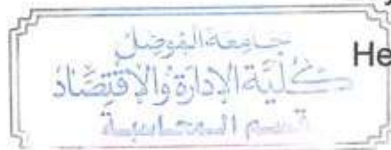 جامعة الموصل
كلية الإدارة والاقتصاد
قسم المحاسبة
He